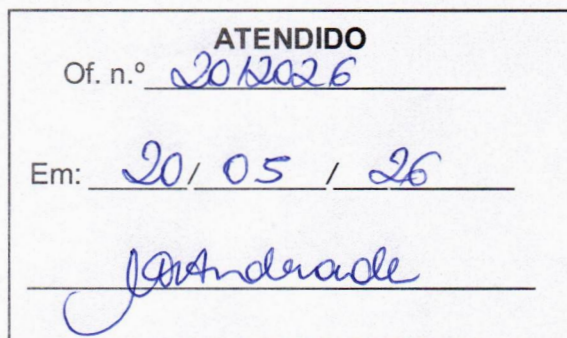 ATENDIDO
Of. n.º 20/2026
Em: 20/ 05 / 26